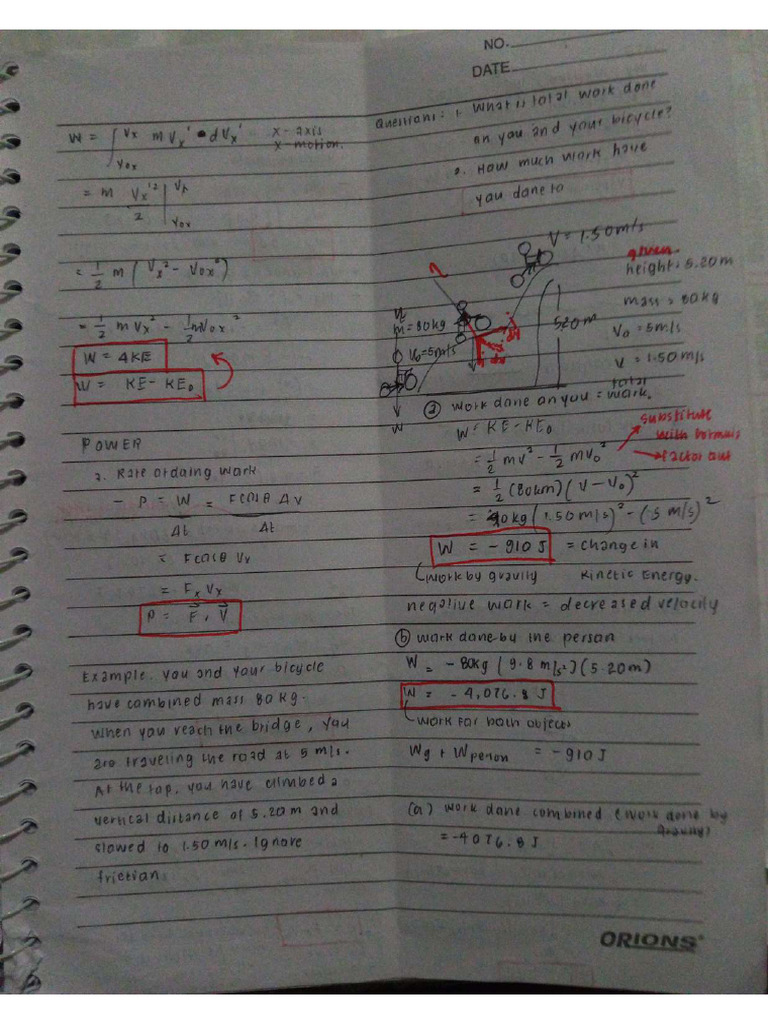 NO.
DATE
W = ∫ Vx Vox m Vx' • dVx' x-axis
x-motion.
= m Vx'² / 2 | Vx Vox
= 1/2 m ( Vx² - Vox² )
= 1/2 mVx² - 1/2 mVox²
W = ΔKE
W = KE - KE₀
POWER
2. Rate of doing work
- P = W / Δt = Fcosθ Δv / Δt
= Fcosθ Vx
= Fx Vx
P = F⃗ . V⃗
Example. You and your bicycle
have combined mass 80 kg.
When you reach the bridge, you
are traveling the road at 5 m/s.
At the top, you have climbed a
vertical distance of 5.20 m and
slowed to 1.50 m/s. Ignore
friction.
Questions: 1. What is total work done
on you and your bicycle?
2. How much work have
you done to
V = 1.50 m/s
given
height = 5.20m
mass = 80kg
V₀ = 5m/s
V = 1.50 m/s
m = 80kg
V₀ = 5m/s
520 m
W
total
ⓐ work done on you = work.
W = KE - KE₀
= 1/2 mv² - 1/2 mv₀²
substitute
with formula
factor out
= 1/2 (80km) ( V - V₀ )²
= 40kg ( 1.50 m/s )² - ( 5 m/s )²
W = - 910 J = change in
work by gravity Kinetic Energy.
negative work = decreased velocity
ⓑ work done by the person
W = - 80kg ( 9.8 m/s² ) (5.20m)
W = - 4,076.8 J
work for both objects
Wg + Wperson = -910 J
(a) work done combined (work done by
gravity)
= -4076.8 J
ORIONS